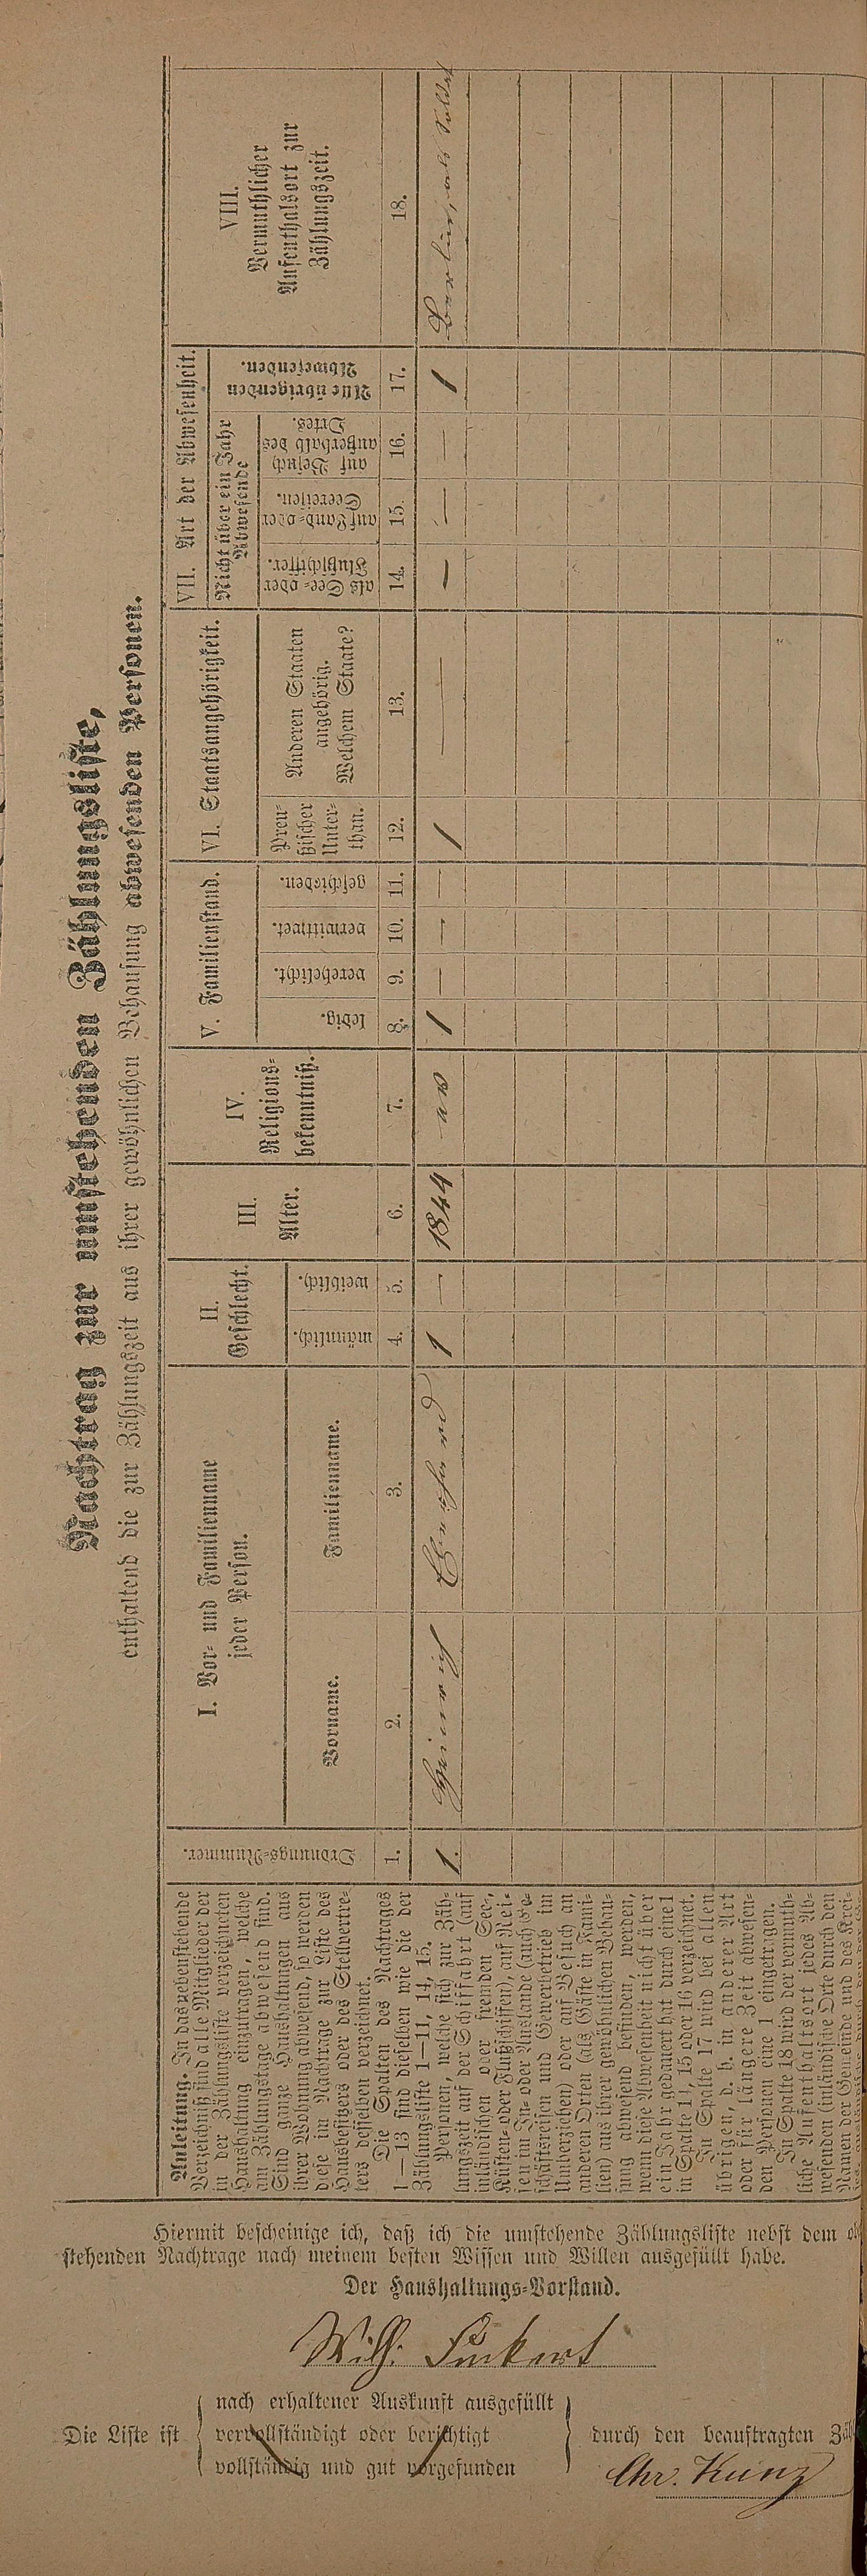 Nachtrag zur umstehenden Zählungsliste,
enthaltend die zur Zählungszeit aus ihrer gewöhnlichen Behausung abwesenden Personen.
Anleitung. In das nebenstehende
Verzeichniß sind alle Mitglieder der
in der Zählungsliste verzeichneten
Haushaltung einzutragen, welche
am Zählungstage abwesend sind.
Sind ganze Haushaltungen aus
ihrer Wohnung abwesend, so werden
diese im Nachtrage zur Liste des
Hausbesitzers oder des Stellvertre-
ters desselben verzeichnet.
Die Spalten des Nachtrages
1—13 sind dieselben wie die der
Zählungsliste 1—11, 14, 15.
Personen, welche sich zur Zäh-
lungszeit auf der Schiffahrt (auf
inländischen oder fremden See-,
Küsten- oder Flußschiffen), auf Rei-
sen im In- oder Auslande (auch Ge-
schäftsreisen und Gewerbetrieb im
Umherziehen) oder auf Besuch an
anderen Orten (als Gäste in Fami-
lien) aus ihrer gewöhnlichen Behau-
sung abwesend befinden, werden,
wenn diese Abwesenheit nicht über
ein Jahr gedauert hat durch eine 1
in Spalte 14, 15 oder 16 verzeichnet.
In Spalte 17 wird bei allen
übrigen, d. h. in anderer Art
oder für längere Zeit abwesen-
den Personen eine 1 eingetragen.
In Spalte 18 wird der vermuth-
liche Aufenthaltsort jedes Ab-
wesenden (inländische Orte durch den
Namen der Gemeinde und des Krei-
Ordnungs-Nummer.
I. Vor- und Familienname
jeder Person.
Vorname.
Familienname.
II.
Geschlecht.
männlich.
weiblich.
III.
Alter.
IV.
Religions-
bekenntniß.
V. Familienstand.
ledig.
verehelicht.
verwittwet.
geschieden.
VI. Staatsangehörigkeit.
Preu-
ßischer
Unter-
than.
Anderen Staaten
angehörig.
Welchem Staate?
VII. Art der Abwesenheit.
Nicht über ein Jahr
Abwesende
als See- oder
Flußschiffer.
auf Land- oder
Seereisen.
auf Besuch
außerhalb des
Ortes.
Alle übrigenden
Abwesenden.
VIII.
Vermuthlicher
Aufenthalsort zur
Zählungszeit.
1. 2. 3. 4. 5. 6. 7. 8. 9. 10. 11. 12. 13. 14. 15. 16. 17. 18.
1. Heinrich 1 — 1844 1 — — — 1 — — — — 1 Berlin, als Soldat
Hiermit bescheinige ich, daß ich die umstehende Zählungsliste nebst dem
stehenden Nachtrage nach meinem besten Wissen und Willen ausgefüllt habe.
Der Haushaltungs-Vorstand.
Wilh. Funkert
Die Liste ist
nach erhaltener Auskunft ausgefüllt
vervollständigt oder berichtigt
vollständig und gut vorgefunden
durch den beauftragten
Chr. Kunz